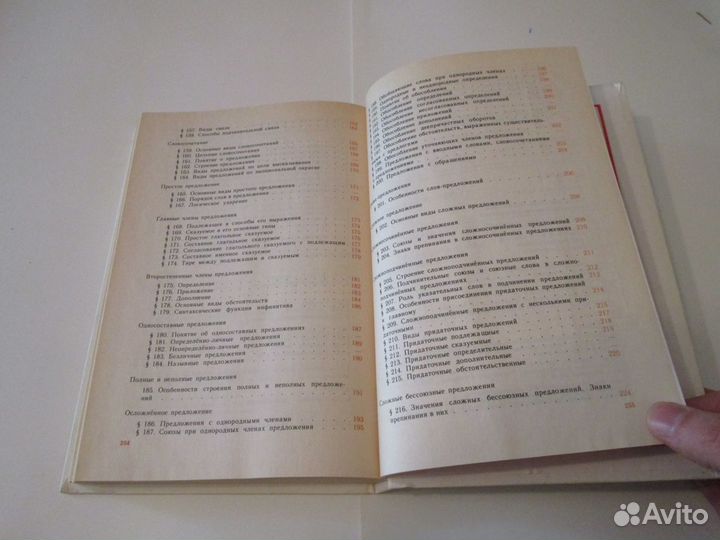 § 157. Виды связи
§ 158. Способы подчинительной связи
Словосочетание
§ 159. Основные виды словосочетаний
§ 160. Цельные словосочетания
§ 161. Понятие о предложении
§ 162. Строение предложения
§ 163. Виды предложений по цели высказывания
§ 164. Виды предложений по эмоциональной окраске
Простое предложение
§ 165. Основные виды простого предложения 171
§ 166. Порядок слов в предложении
§ 167. Логическое ударение
Главные члены предложения
§ 168. Подлежащее и способы его выражения
§ 169. Сказуемое и его основные типы
§ 170. Простое глагольное сказуемое
§ 171. Составное глагольное сказуемое
§ 172. Согласование глагольного сказуемого с подлежащим
§ 173. Составное именное сказуемое
§ 174. Тире между подлежащим и сказуемым
Второстепенные члены предложения
§ 175. Определение 181
§ 176. Приложение 182
§ 177. Дополнение
§ 178. Основные виды обстоятельств
§ 179. Синтаксические функции инфинитива 186
Односоставные предложения
§ 180. Понятие об односоставных предложениях 187
§ 181. Определённо-личные предложения
§ 182. Неопределённо-личные предложения
§ 183. Безличные предложения
§ 184. Назывные предложения
Полные и неполные предложения
185. Особенности строения полных и неполных предложе-
ний 191
Осложнённое предложение
§ 186. Предложения с однородными членами 193
§ 187. Союзы при однородных членах предложения 195
254
Обобщающие слова при однородных членах
Однородные и неоднородные определения
Понятие об обособлении
Обособление определений
Обособление согласованных определений
Обособление несогласованных определений
Обособление приложений
Обособление дополнений
Обособление деепричастных оборотов
Обособление обстоятельств, выраженных существитель-
с предлогами
Обособление уточняющих членов предложения
Предложения с вводными словами, словосочетаниями
§ 200. Предложения с обращениями
§ 201. Особенности слов-предложений
§ 202. Основные виды сложных предложений
Сложносочинённые предложения
§ 203. Союзы и значения сложносочинённых предложений
§ 204. Знаки препинания в сложносочинённых предложениях
Сложноподчинённые предложения
§ 205. Строение сложноподчинённых предложений
§ 206. Подчинительные союзы и союзные слова в сложно-
подчинённых предложениях
§ 207. Роль указательных слов в подчинении предложений
§ 208. Особенности присоединения придаточных предложений
к главному
§ 209. Сложноподчинённые предложения с несколькими при-
даточными
§ 210. Виды придаточных предложений
§ 211. Придаточные подлежащные
§ 212. Придаточные сказуемные
§ 213. Придаточные определительные
§ 214. Придаточные дополнительные
§ 215. Придаточные обстоятельственные 220
Сложные бессоюзные предложения
§ 216. Значения сложных бессоюзных предложений. Знаки
препинания в них 224
255
Avito